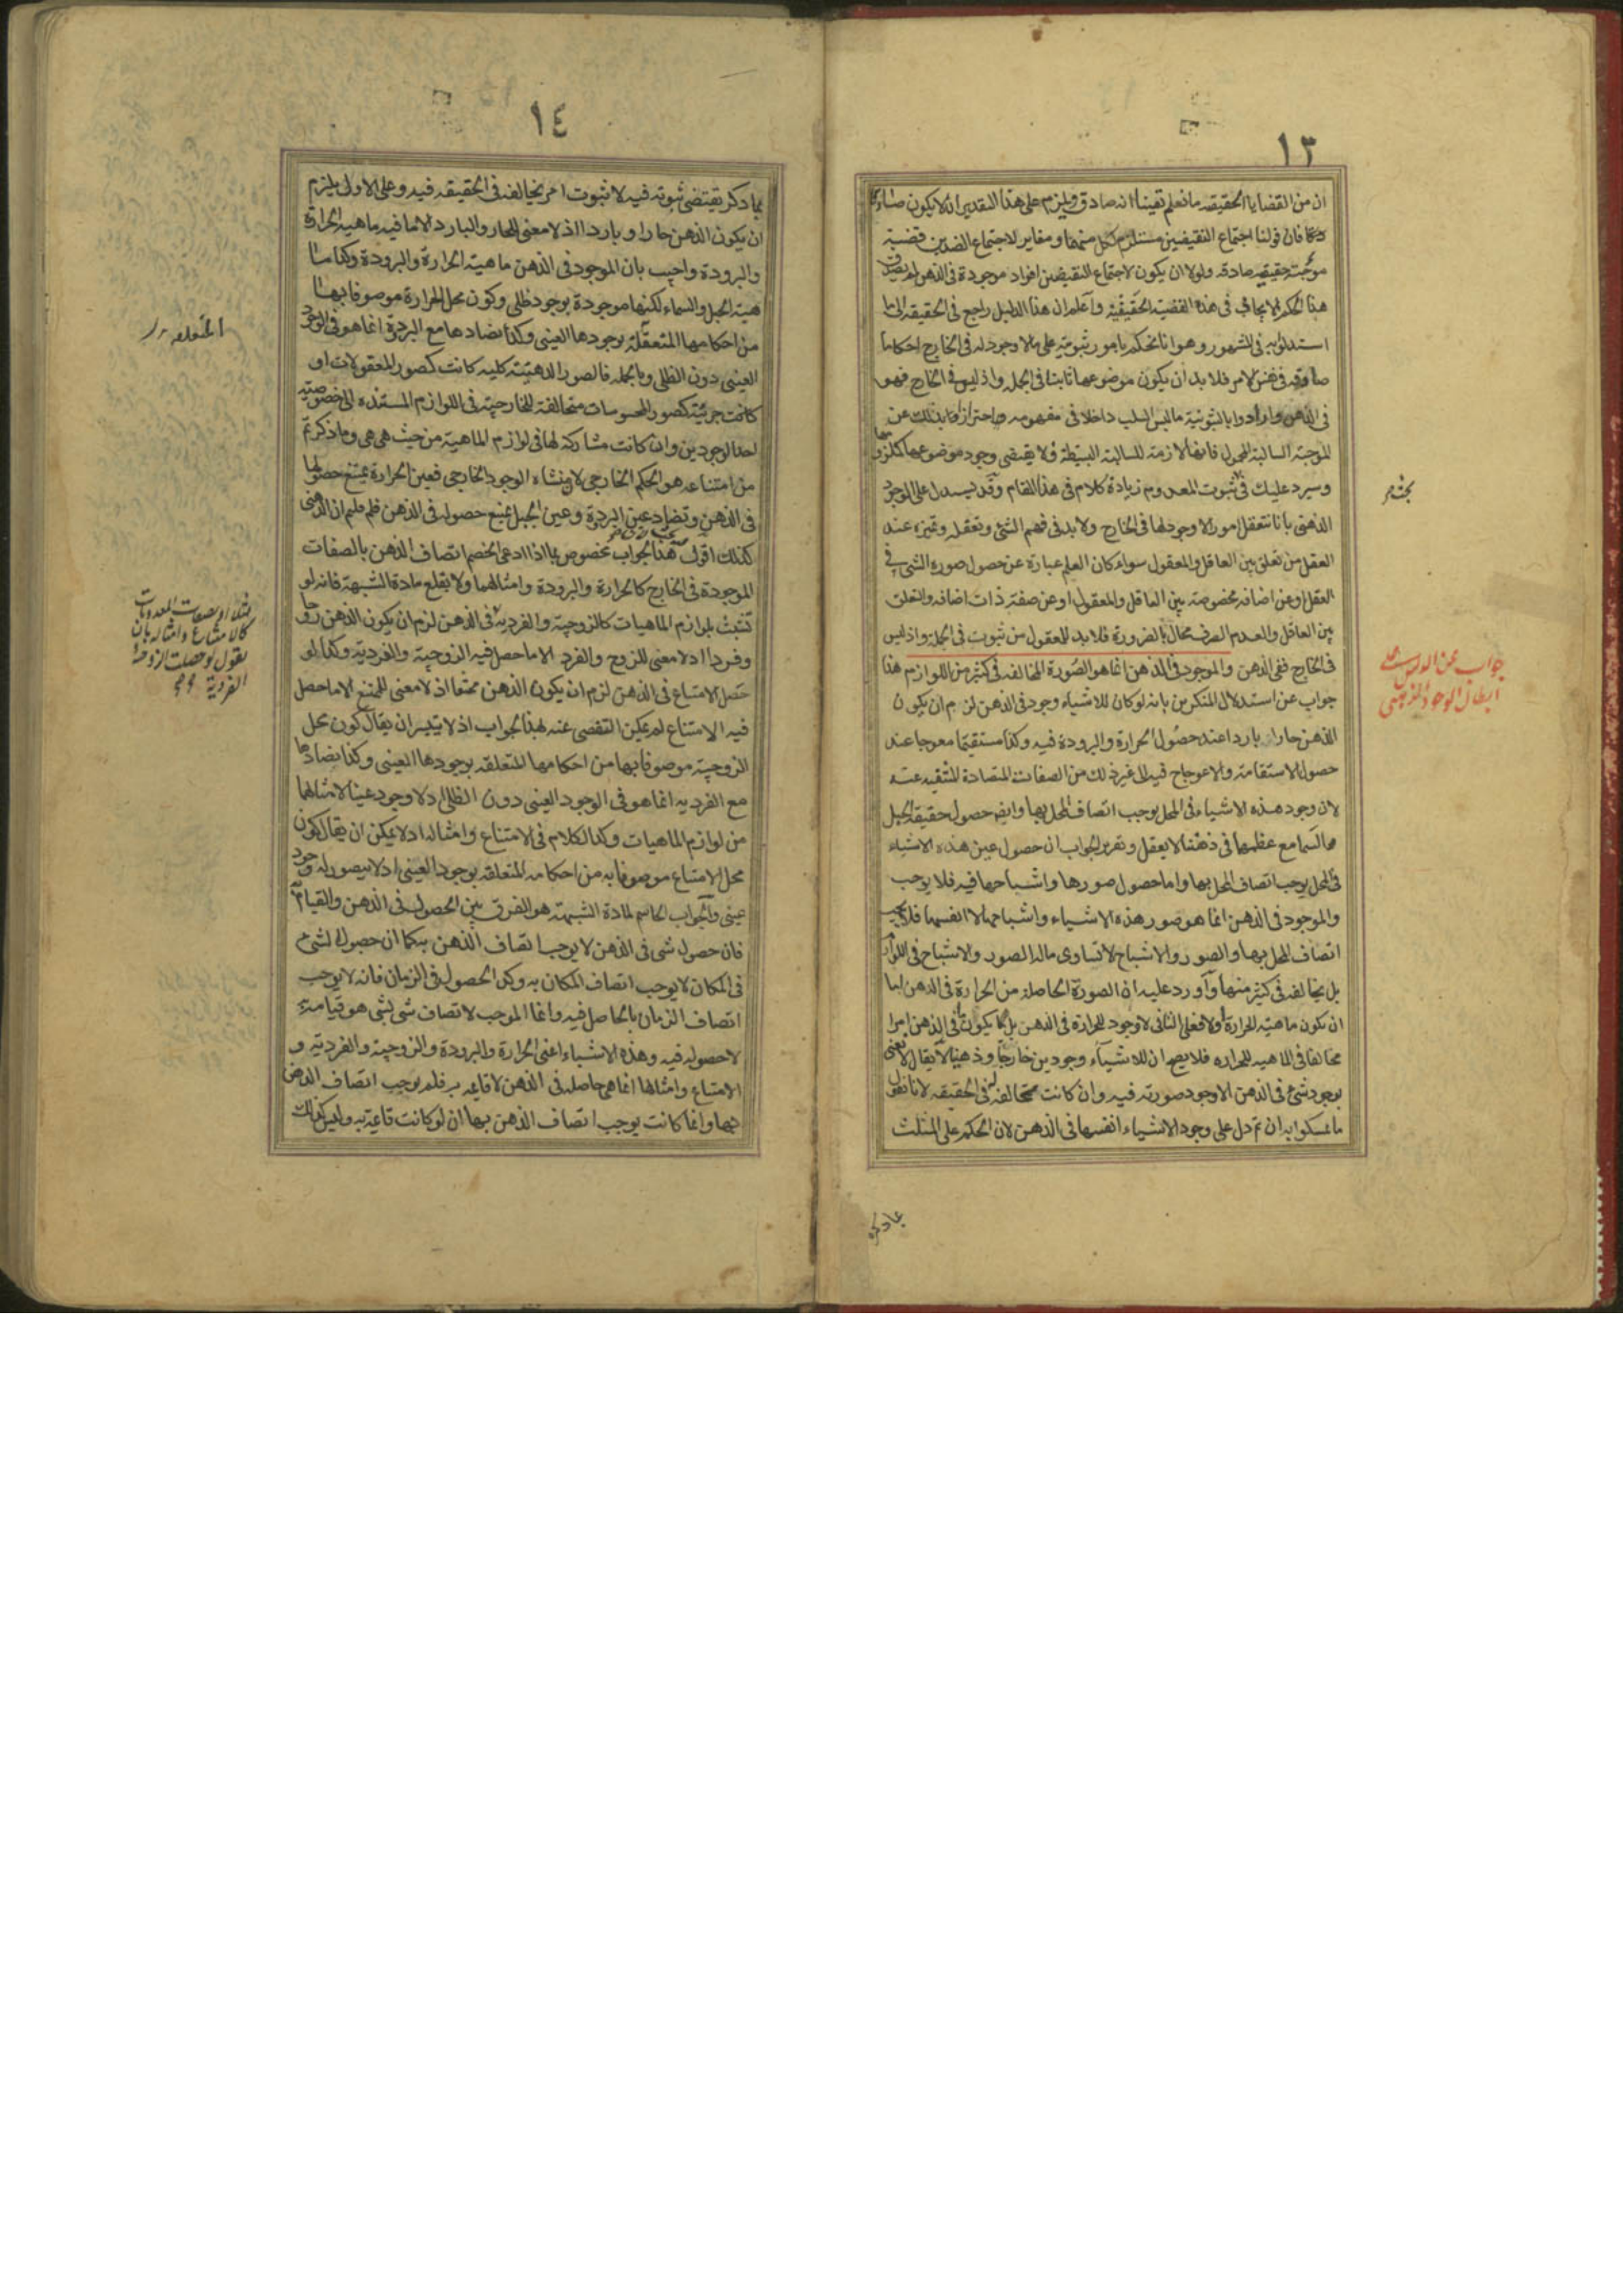 ١٣
ان من القضايا الحقيقه ما نعلم يقينا انه صادق ويلزم على هذا التقدير ان لا يكون صادقا
فان قولنا اجتماع النقيضين مستلزم لكل منهما ومغاير لاجتماع الضدين قضية
موجبة حقيقيه صادقه ولولا ان يكون لاجتماع النقيضين افراد موجودة فى الذهن لم يصدق
هذا الحكم الايجابى فى هذه القضية الحقيقية واعلم ان هذا الدليل راجع فى الحقيقه الى ما
استدلوا به فى المشهور وهو انا نحكم بامور ثبوتيه على ما لا وجود له فى الخارج احكاما
صادقه فى نفس الامر فلا بد ان يكون موضوعها ثابتا فى الجمله واذ ليس فى الخارج فهو
فى الذهن وارادوا بالثبوتية ما ليس السلب داخلا فى مفهومه واحترازوا بذلك عن
الموجبة السالبة المحمول فانها لازمة للسالبة البسيطة فلا يقتضى وجود موضوعها كملزومها
وسيرد عليك فى ثبوت المعدوم زيادة كلام فى هذا المقام وقد يستدل على الوجود
الذهنى بانا نتعقل امورا لا وجود لها فى الخارج ولا بد فى فهم الشئ وتعقله وتميزه عند
العقل من تعلق بين العاقل والمعقول سواء كان العلم عبارة عن حصول صورة الشئ فى
العقل او عن اضافه مخصوصة بين العاقل والمعقول او عن صفة ذات اضافه والتعلق
بين العاقل والعدم الصرف محال بالضرورة فلا بد للمعقول من ثبوت فى الجملة واذ ليس
فى الخارج ففى الذهن والموجود فى الذهن انما هو الصورة المخالفه فى كثير من اللوازم هذا
جواب عن استدلال المنكرين بانه لو كان للاشياء وجود فى الذهن لزم ان يكون
الذهن حارا باردا عند حصول الحرارة والبرودة فيه وكذا مستقيما معوجا عند
حصول الاستقامة والاعوجاج فيه الى غير ذلك من الصفات المتضادة المنتفيه عنه
لان وجود هذه الاشياء فى المحل يوجب اتصاف المحل بها وايضا حصول حقيقة الجبل
والسماء مع عظمها فى ذهننا لا يعقل وتقرير الجواب ان حصول عين هذه الاشياء
فى المحل يوجب اتصاف المحل بها واما حصول صورها واشباحها فيه فلا يوجب
والموجود فى الذهن انما هو صور هذه الاشياء واشباحها لا انفسها فلا يجب
اتصاف المحل بها والصور والاشباح لا تساوى ما له الصور والاشباح فى اللوازم
بل يخالفه فى كثير منها واورد عليه ان الصورة الحاصلة من الحرارة فى الذهن اما
ان تكون ماهية الحرارة او لا فعلى الثانى لا وجود للحرارة فى الذهن بل يكون فى الذهن امرا
مخالفا فى الماهيه للحراره فلا يصح ان للاشياء وجودين خارجيا وذهنيا لا يقال لا نعنى
بوجود شئ فى الذهن الا وجود صورته فيه وان كانت مخالفة له فى الحقيقه لانا نقول
ما تمسكوا به ان تم دل على وجود الاشياء انفسها فى الذهن لان الحكم على المثلث
بما ذكر
جواب عن
ابطال الوجود الذهنى
١٤
بما ذكر يقتضى ثبوته فيه لا ثبوت امر يخالفه فى الحقيقه فيه وعلى الاولى يلزم
ان يكون الذهن حارا وباردا اذ لا معنى للحار والبارد الا ما فيه ماهية الحرارة
والبرودة واجيب بان الموجود فى الذهن ماهية الحرارة والبرودة وكذا ما
هية الجبل والسماء لكنها موجودة بوجود ظلى وكون محل الحرارة موصوفا بها
من احكامها المتعلقة بوجودها العينى وكذا تضادها مع البرودة انما هو فى الوجود
العينى دون الظلى وبالجمله فالصور الذهنية كليه كانت كصور المعقولات او
كانت جزئية كصور المحسوسات مخالفة للخارجية فى اللوازم المستنده الى خصوصية
احد الوجودين وان كانت مشاركة لها فى لوازم الماهية من حيث هى هى وما ذكرتم
من امتناعه هو الحكم الخارجى لان منشاه الوجود الخارجى فعين الحرارة يمتنع حصولها
فى الذهن وتضاد عين البرودة وعين الجبل يمتنع حصوله فى الذهن فلم قلتم ان الذهنى
كذلك اقول هذا الجواب مخصوص بما اذا ادعى الخصم اتصاف الذهن بالصفات
الموجودة فى الخارج كالحرارة والبرودة وامثالهما ولا يقلع مادة الشبهة فانه لو
تشبث بلوازم الماهيات كالزوجية والفردية فى الذهن لزم ان يكون الذهن زوجا
وفردا اذ لا معنى للزوج والفرد الا ما حصل فيه الزوجية والفردية وكذا لو
حصل الامتناع فى الذهن لزم ان يكون الذهن ممتنعا اذ لا معنى للممتنع الا ما حصل
فيه الامتناع لم يمكن التفصى عنه لهذا الجواب اذ لا يتيسر ان يقال كون محل
الزوجية موصوفا بها من احكامها المتعلقه بوجودها العينى وكذا تضادها
مع الفرديه انما هو فى الوجود العينى دون الظلى اذ لا وجود عينيا لامثالها
من لوازم الماهيات وكذا الكلام فى الامتناع وامثاله اذ لا يمكن ان يقال كون
محل الامتناع موصوفا به من احكامه المتعلقه بوجوده العينى اذ لا يتصور له وجود
عينى والجواب الحاسم لمادة الشبهة هو الفرق بين الحصول فى الذهن والقيام به
فان حصول شى فى الذهن لا يوجب اتصاف الذهن به كما ان حصول الشئ
فى المكان لا يوجب اتصاف المكان به وكذا الحصول فى الزمان فانه لا يوجب
اتصاف الزمان بالحاصل فيه وانما الموجب لاتصاف شى بشى هو قيامه به
لا حصوله فيه وهذه الاشياء اعنى الحرارة والبرودة والزوجية والفردية و
الامتناع وامثالها انما هى حاصله فى الذهن لا قائمه به فلم يوجب اتصاف الذهن
بها وانما كانت يوجب اتصاف الذهن بها ان لو كانت قائمة به وليس كذلك
المتعلقه
بصفات المعدومات
كالامتناع وامثاله بان
يقول لو حصلت الزوجية
الفردية